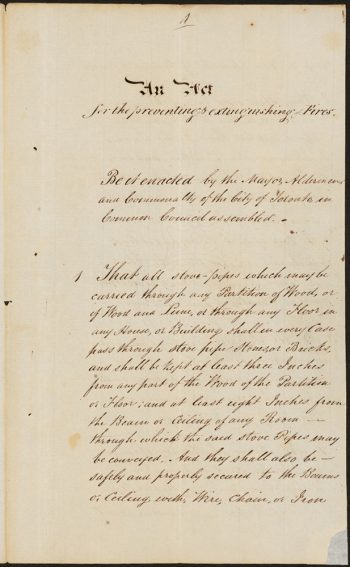 1
An Act
for the preventing & extinguishing Fires.
Be it enacted by the Mayor, Aldermen
and Commonalty of the City of Toronto in
Common Council assembled. -
1 That all stove-pipes which may be
carried through any Partition of Wood, or
of Wood and Lime, or through any Floor in
any House, or Building shall in every Case
pass through stove pipe Stones or Bricks,
and shall be kept at least three Inches
from any part of the Wood of the Partition
or Floor; and at least eight Inches from
the Beam or Ceiling of any Room --
through which the said Stove Pipes may
be conveyed. And they shall also be -
safely and properly secured to the Beams
or Ceiling, with, Wire, Chain, or Iron